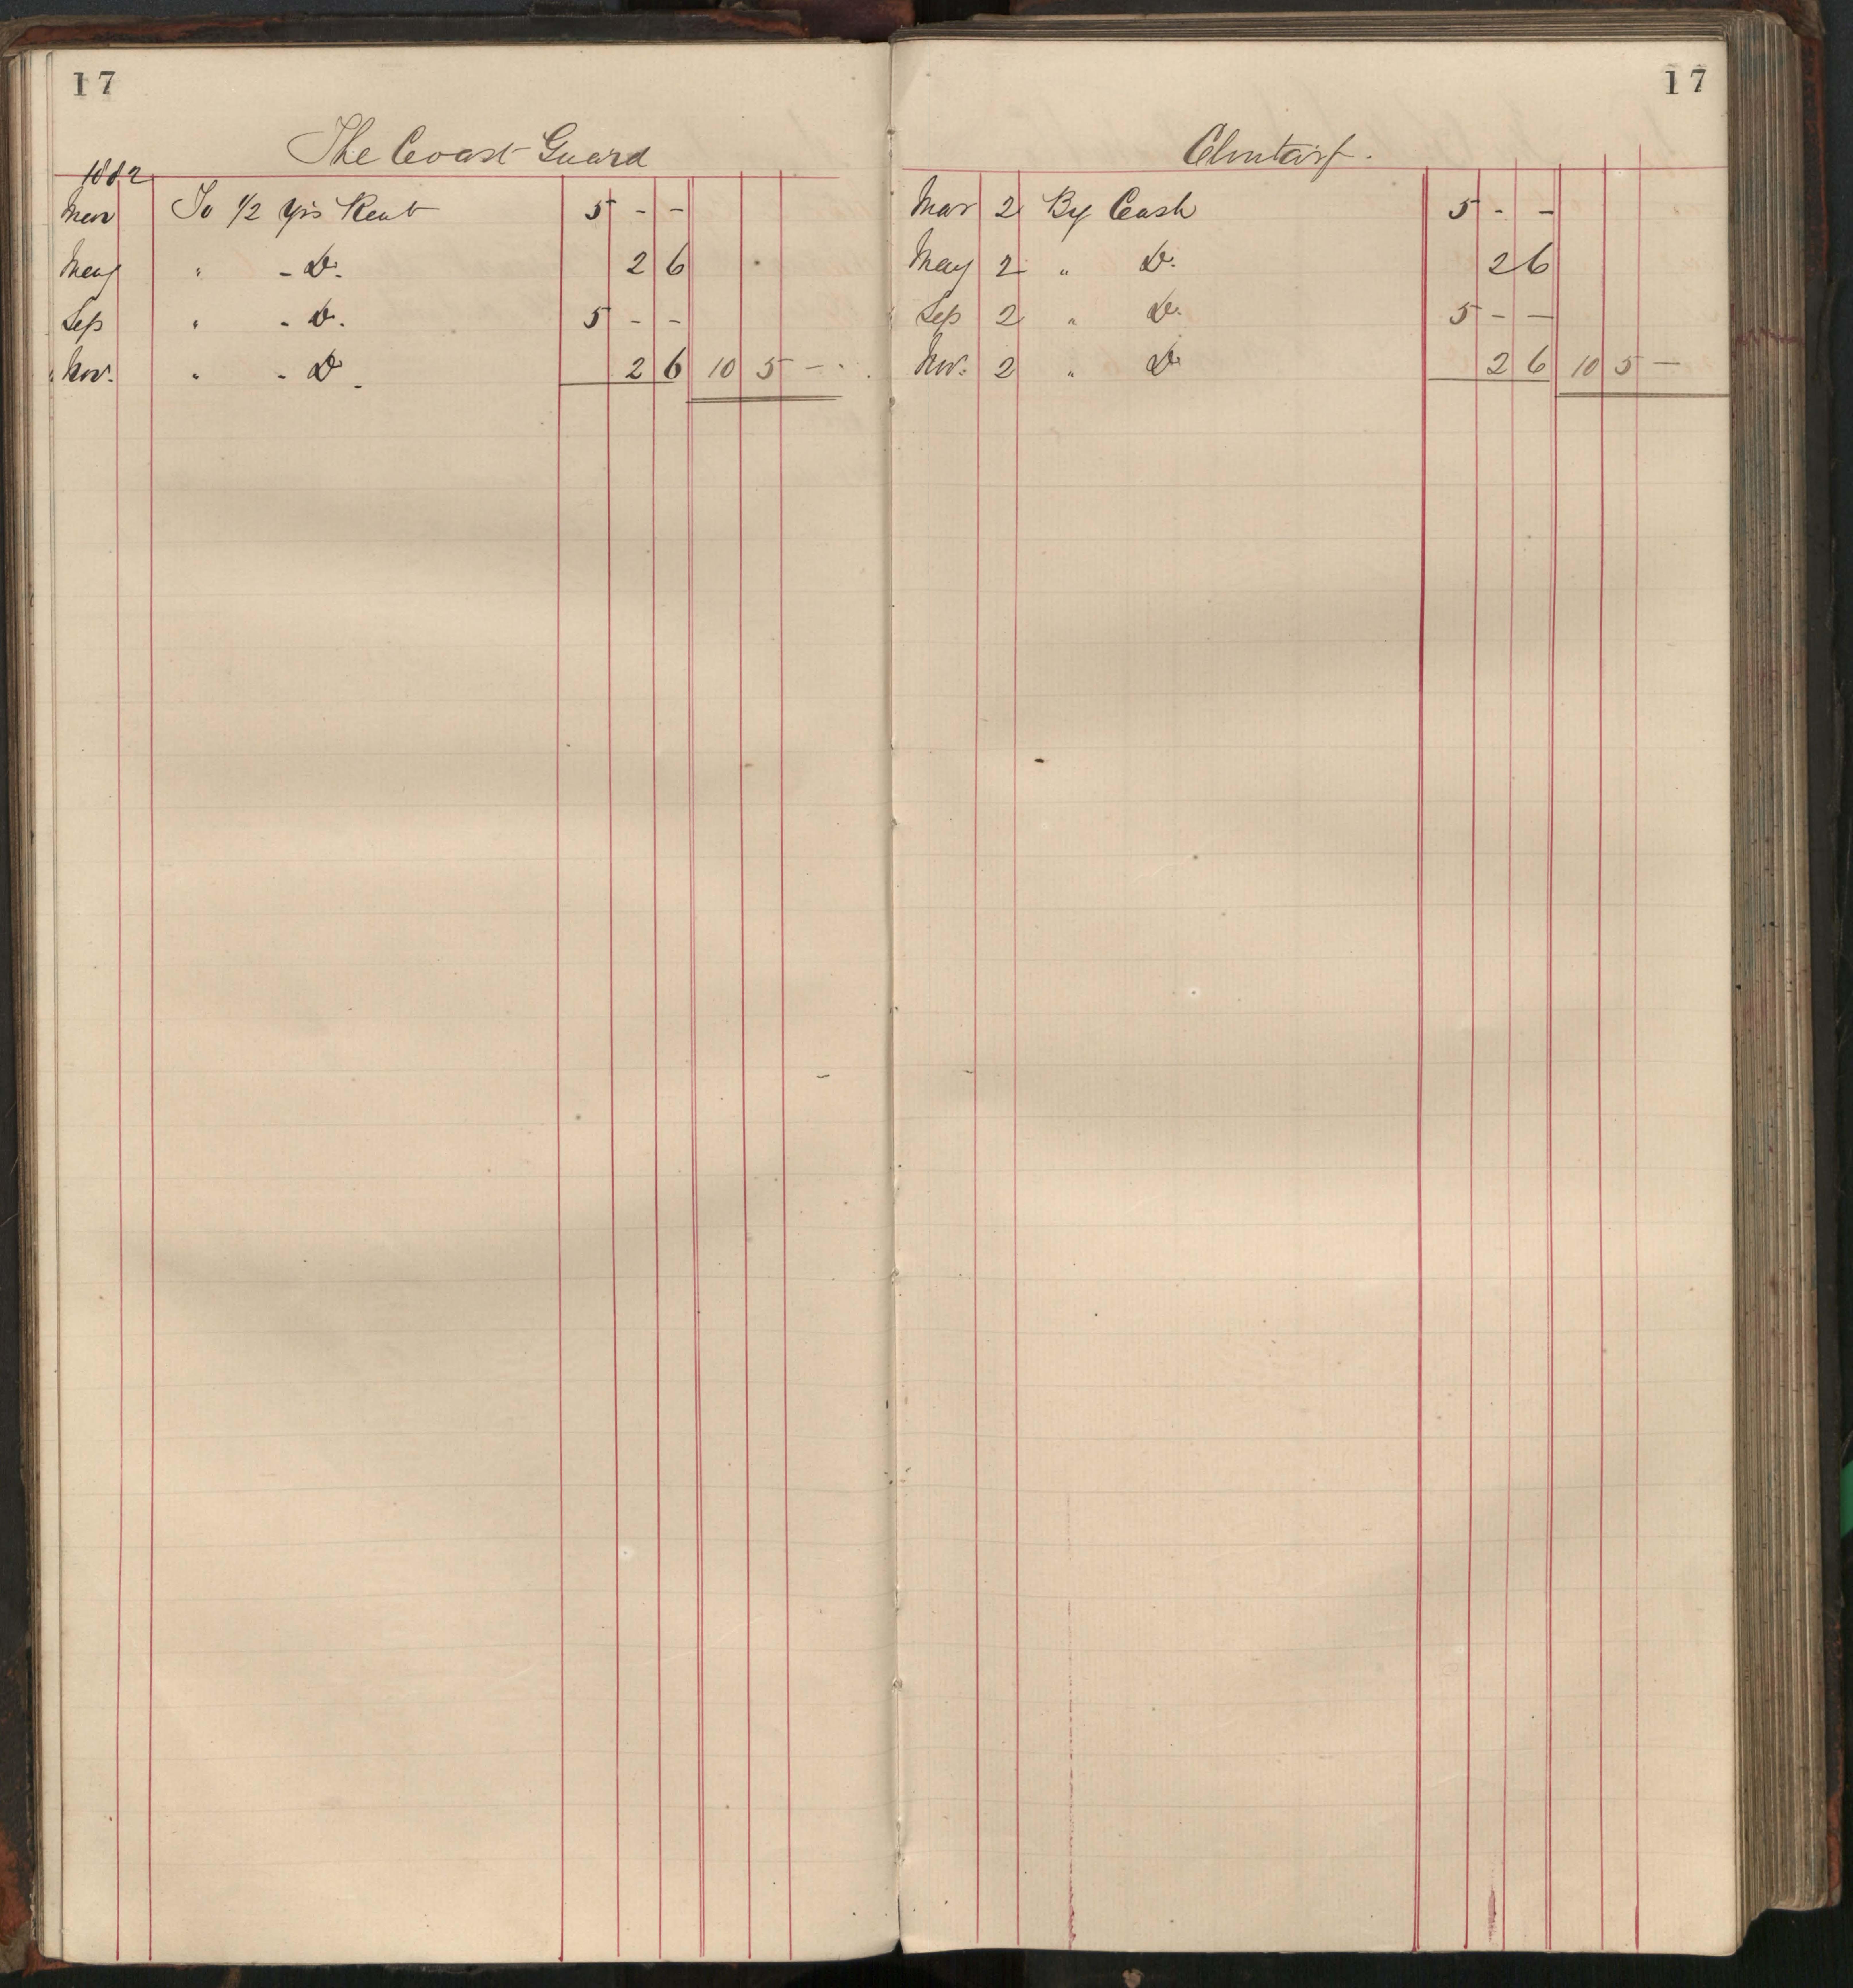 17
The Coast Guard
1882
Mar To 1/2 Yrs Rent 5 - -
May " - Do. 2 6
Sep " - Do. 5 - -
Nov. " - Do. 2 6 10 5 -
17
Clontarf.
Mar 2 By Cash 5 - -
May 2 " Do. 2 6
Sep 2 " Do. 5 - -
Nov. 2 " Do 2 6 10 5 -